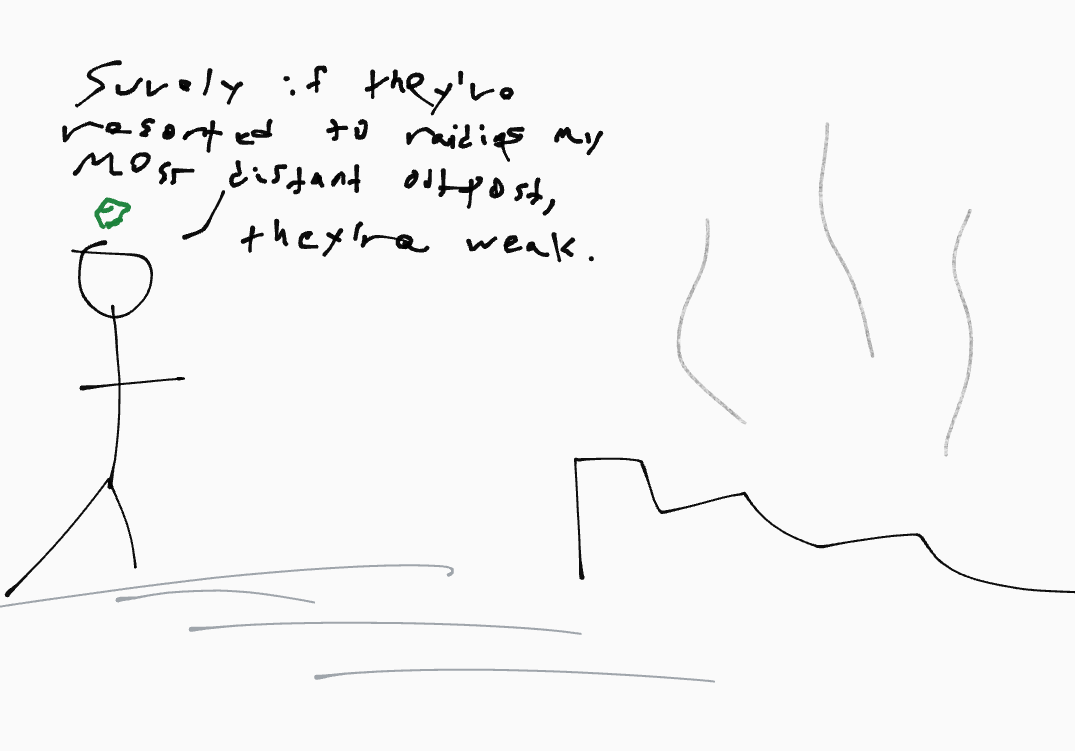 Surely if they're
resorted to raidigs my
MOST distant outpost,
they're weak.